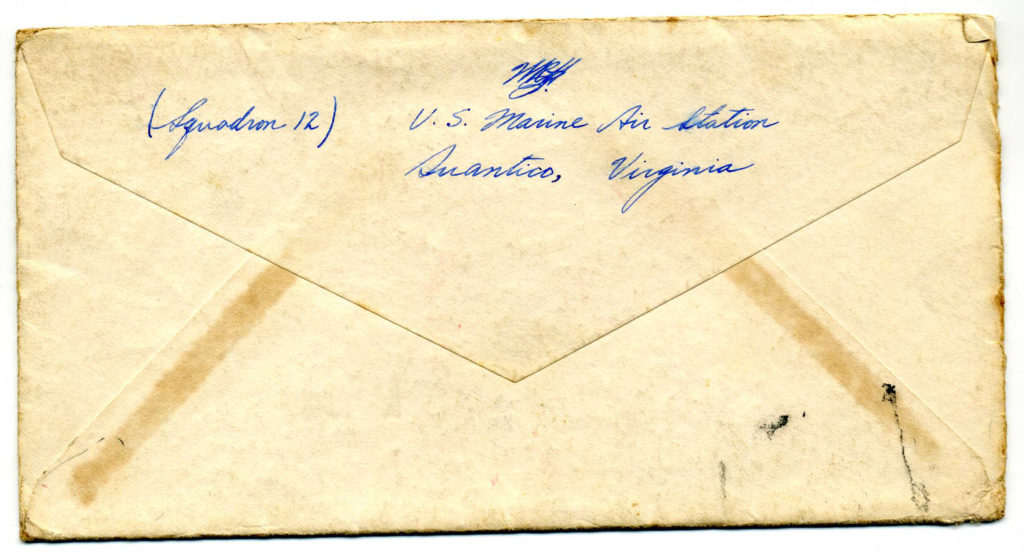 (Squadron 12) U. S. Marine Air Station
Quantico, Virginia